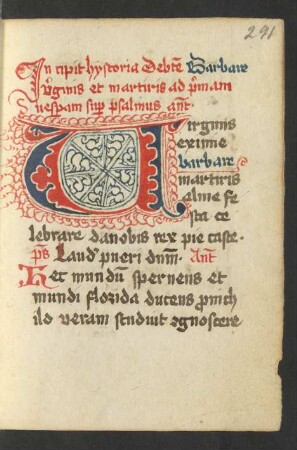 291
Incipit hystoria de bte Barbare
v̓ginis et martiris ad p̓mam
vesp̄am sup̄ psalmus ant̄.
Virginis
eximie
barbare
martiris
alme fe
sta ce
lebrare da nobis rex pie caste.
ps̄ Laud̓ pueri dnm̄. Ant
Hec mundū spernens et
mundi florida ducens pro
ilo veram studuit cognoscere